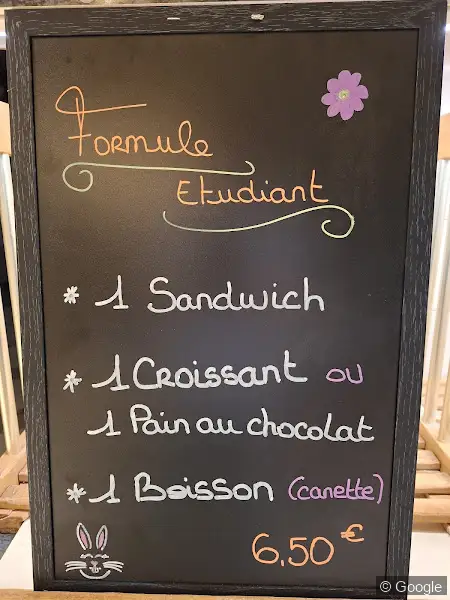 Formule
Etudiant
* 1 Sandwich
* 1 Croissant ou
1 Pain au chocolat
* 1 Boisson (canette)
6,50 €
© Google